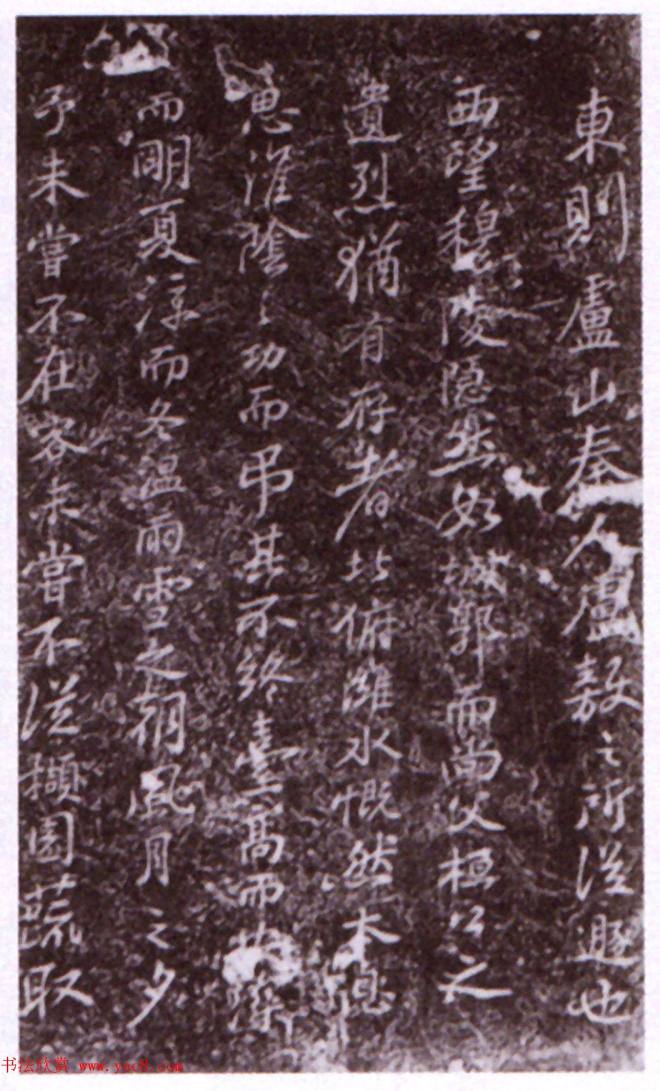 東則盧山秦人盧敖之所從遯也
西望穆陵隱然如城郭而尚父桓公之
遺烈猶有存者北俯濰水慨然太息
思淮陰之功而弔其不終臺高而安深
而明夏涼而冬溫雨雪之朝風月之夕
予未嘗不在客未嘗不從擷園蔬取
书法欣赏 www.yac8.com